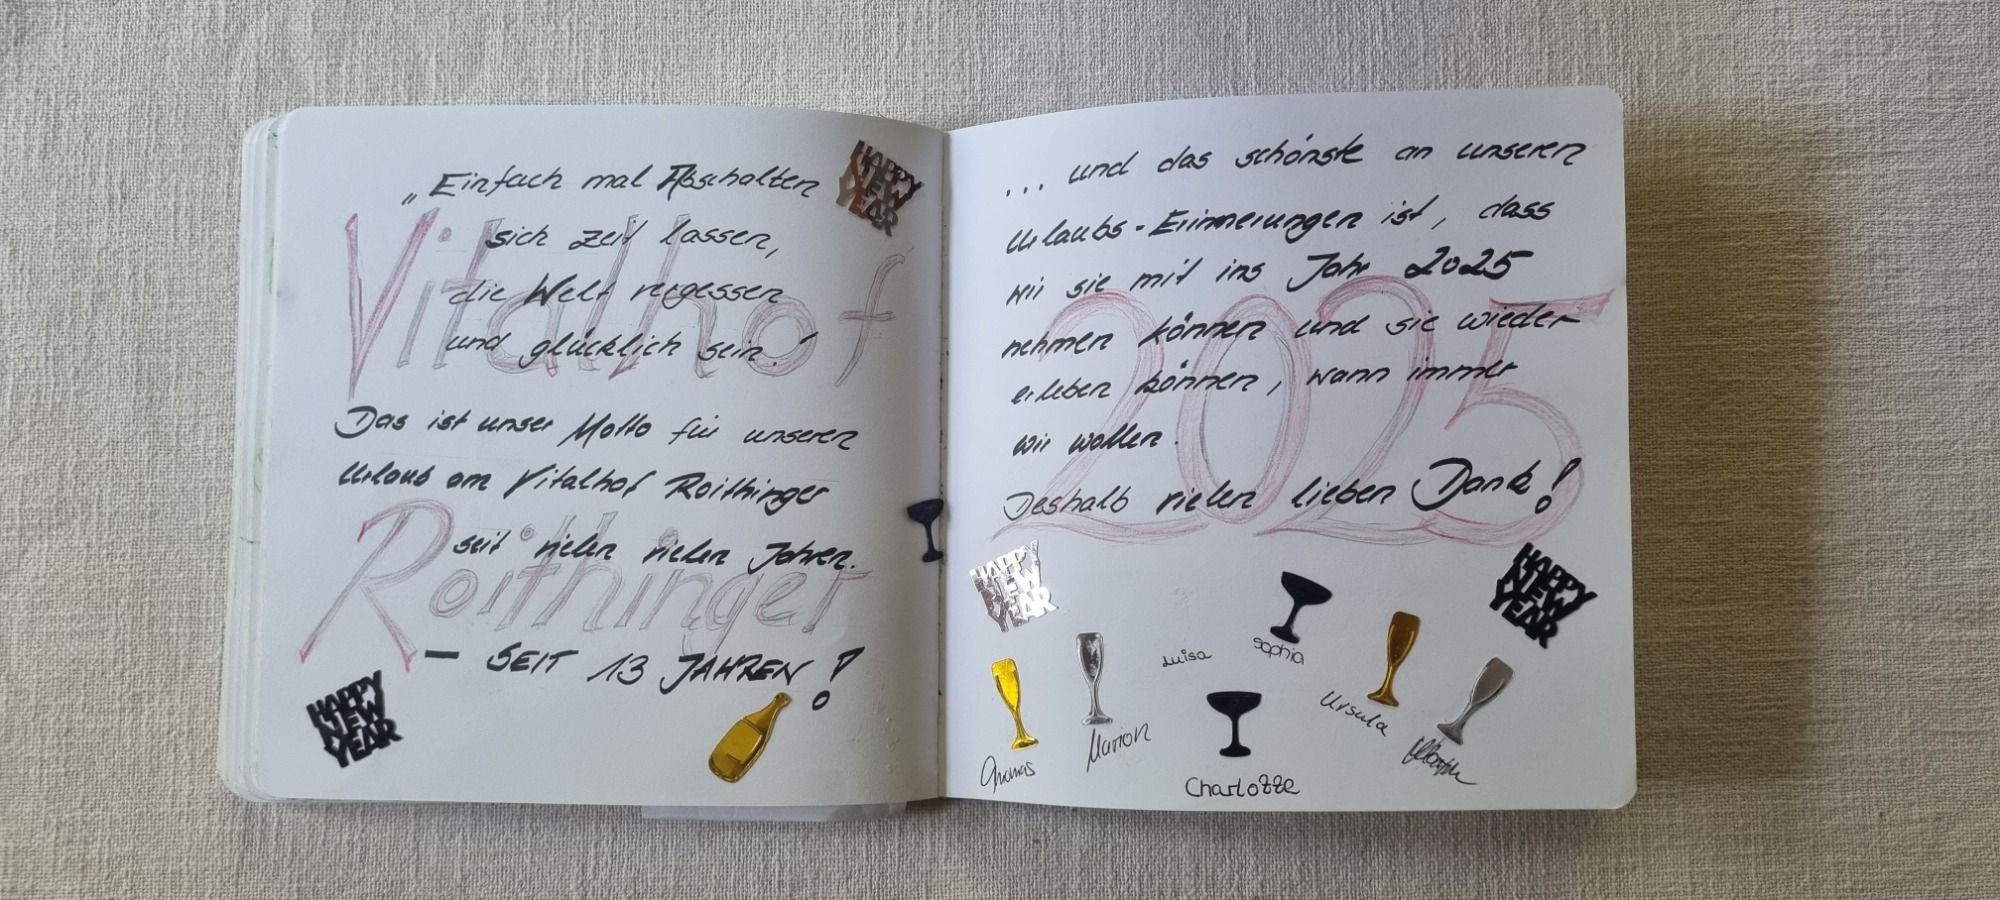 „Einfach mal Abschalten
sich zeit lassen,
die Welt vergessen
und glücklich sein!"
Das ist unser Motto für unseren
Urlaub am Vitalhof Roithinger
seit vielen vielen Jahren.
– SEIT 13 JAHREN!
Vitalhof
Roithinger
HAPPY
NEW
YEAR
HAPPY
NEW
YEAR
... und das schönste an unseren
Urlaubs-Erinnerungen ist, dass
wir sie mit ins Jahr 2025
nehmen können und sie wieder
erleben können, wann immer
wir wollen.
Deshalb vielen lieben Dank!
2025
HAPPY
NEW
YEAR
HAPPY
NEW
YEAR
Luisa
Sophia
Ursula
Marion
Charlotte